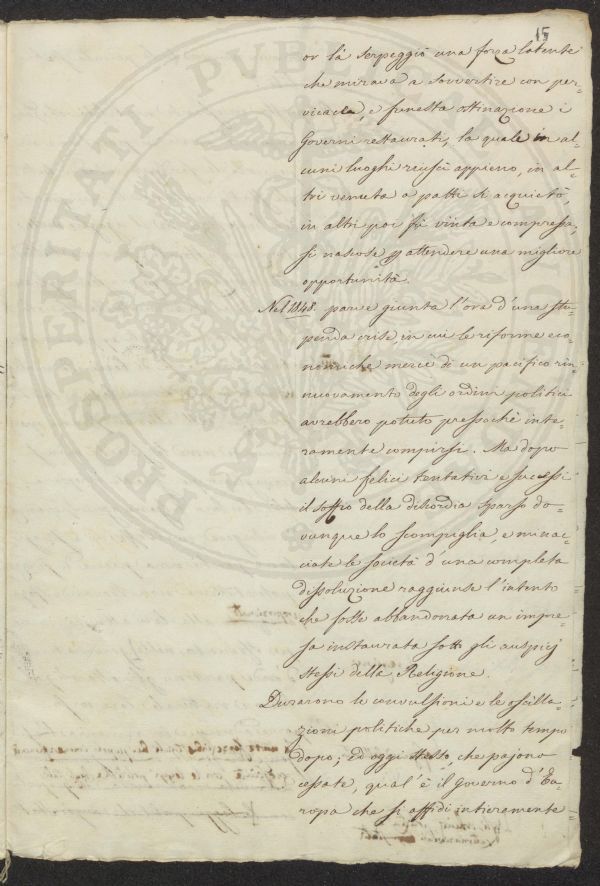 15
or là serpeggiò una forza latente
che mirava a sovvertire con per=
vicacia, e funesta ostinazione i
Governi restaurati, la quale in al=
cuni luoghi riuscì appieno, in al=
tri venuta a patti si acquietò,
in altri poi fù vinta e compressa,
si nascose attendere una migliore
opportunità.
Nel 1848. parve giunta l'ora d'una stu=
penda crise, in cui le riforme eco=
nomiche mercè di un pacifico rin=
nuovamento degli ordini politici
avrebbero potuto pressochè inte=
ramente compirsi. Ma dopo
alcuni felici tentativi e successi
il soffio della discordia sparso do=
vunque lo scompiglio, e minac=
ciate le società d'una completa
dissoluzione raggiunse l'intento
che fosse abbandonata un impre=
sa instaurata sotto gli auspicj
stessi della Religione.
Durarono le convulsioni e le oscilla=
zioni politiche per molto tempo
dopo; ed oggi stesso, che pajono
cessate, qual'è il governo d'Eu=
ropa che si affidi intieramente=
PROSPERITATI PVBLI